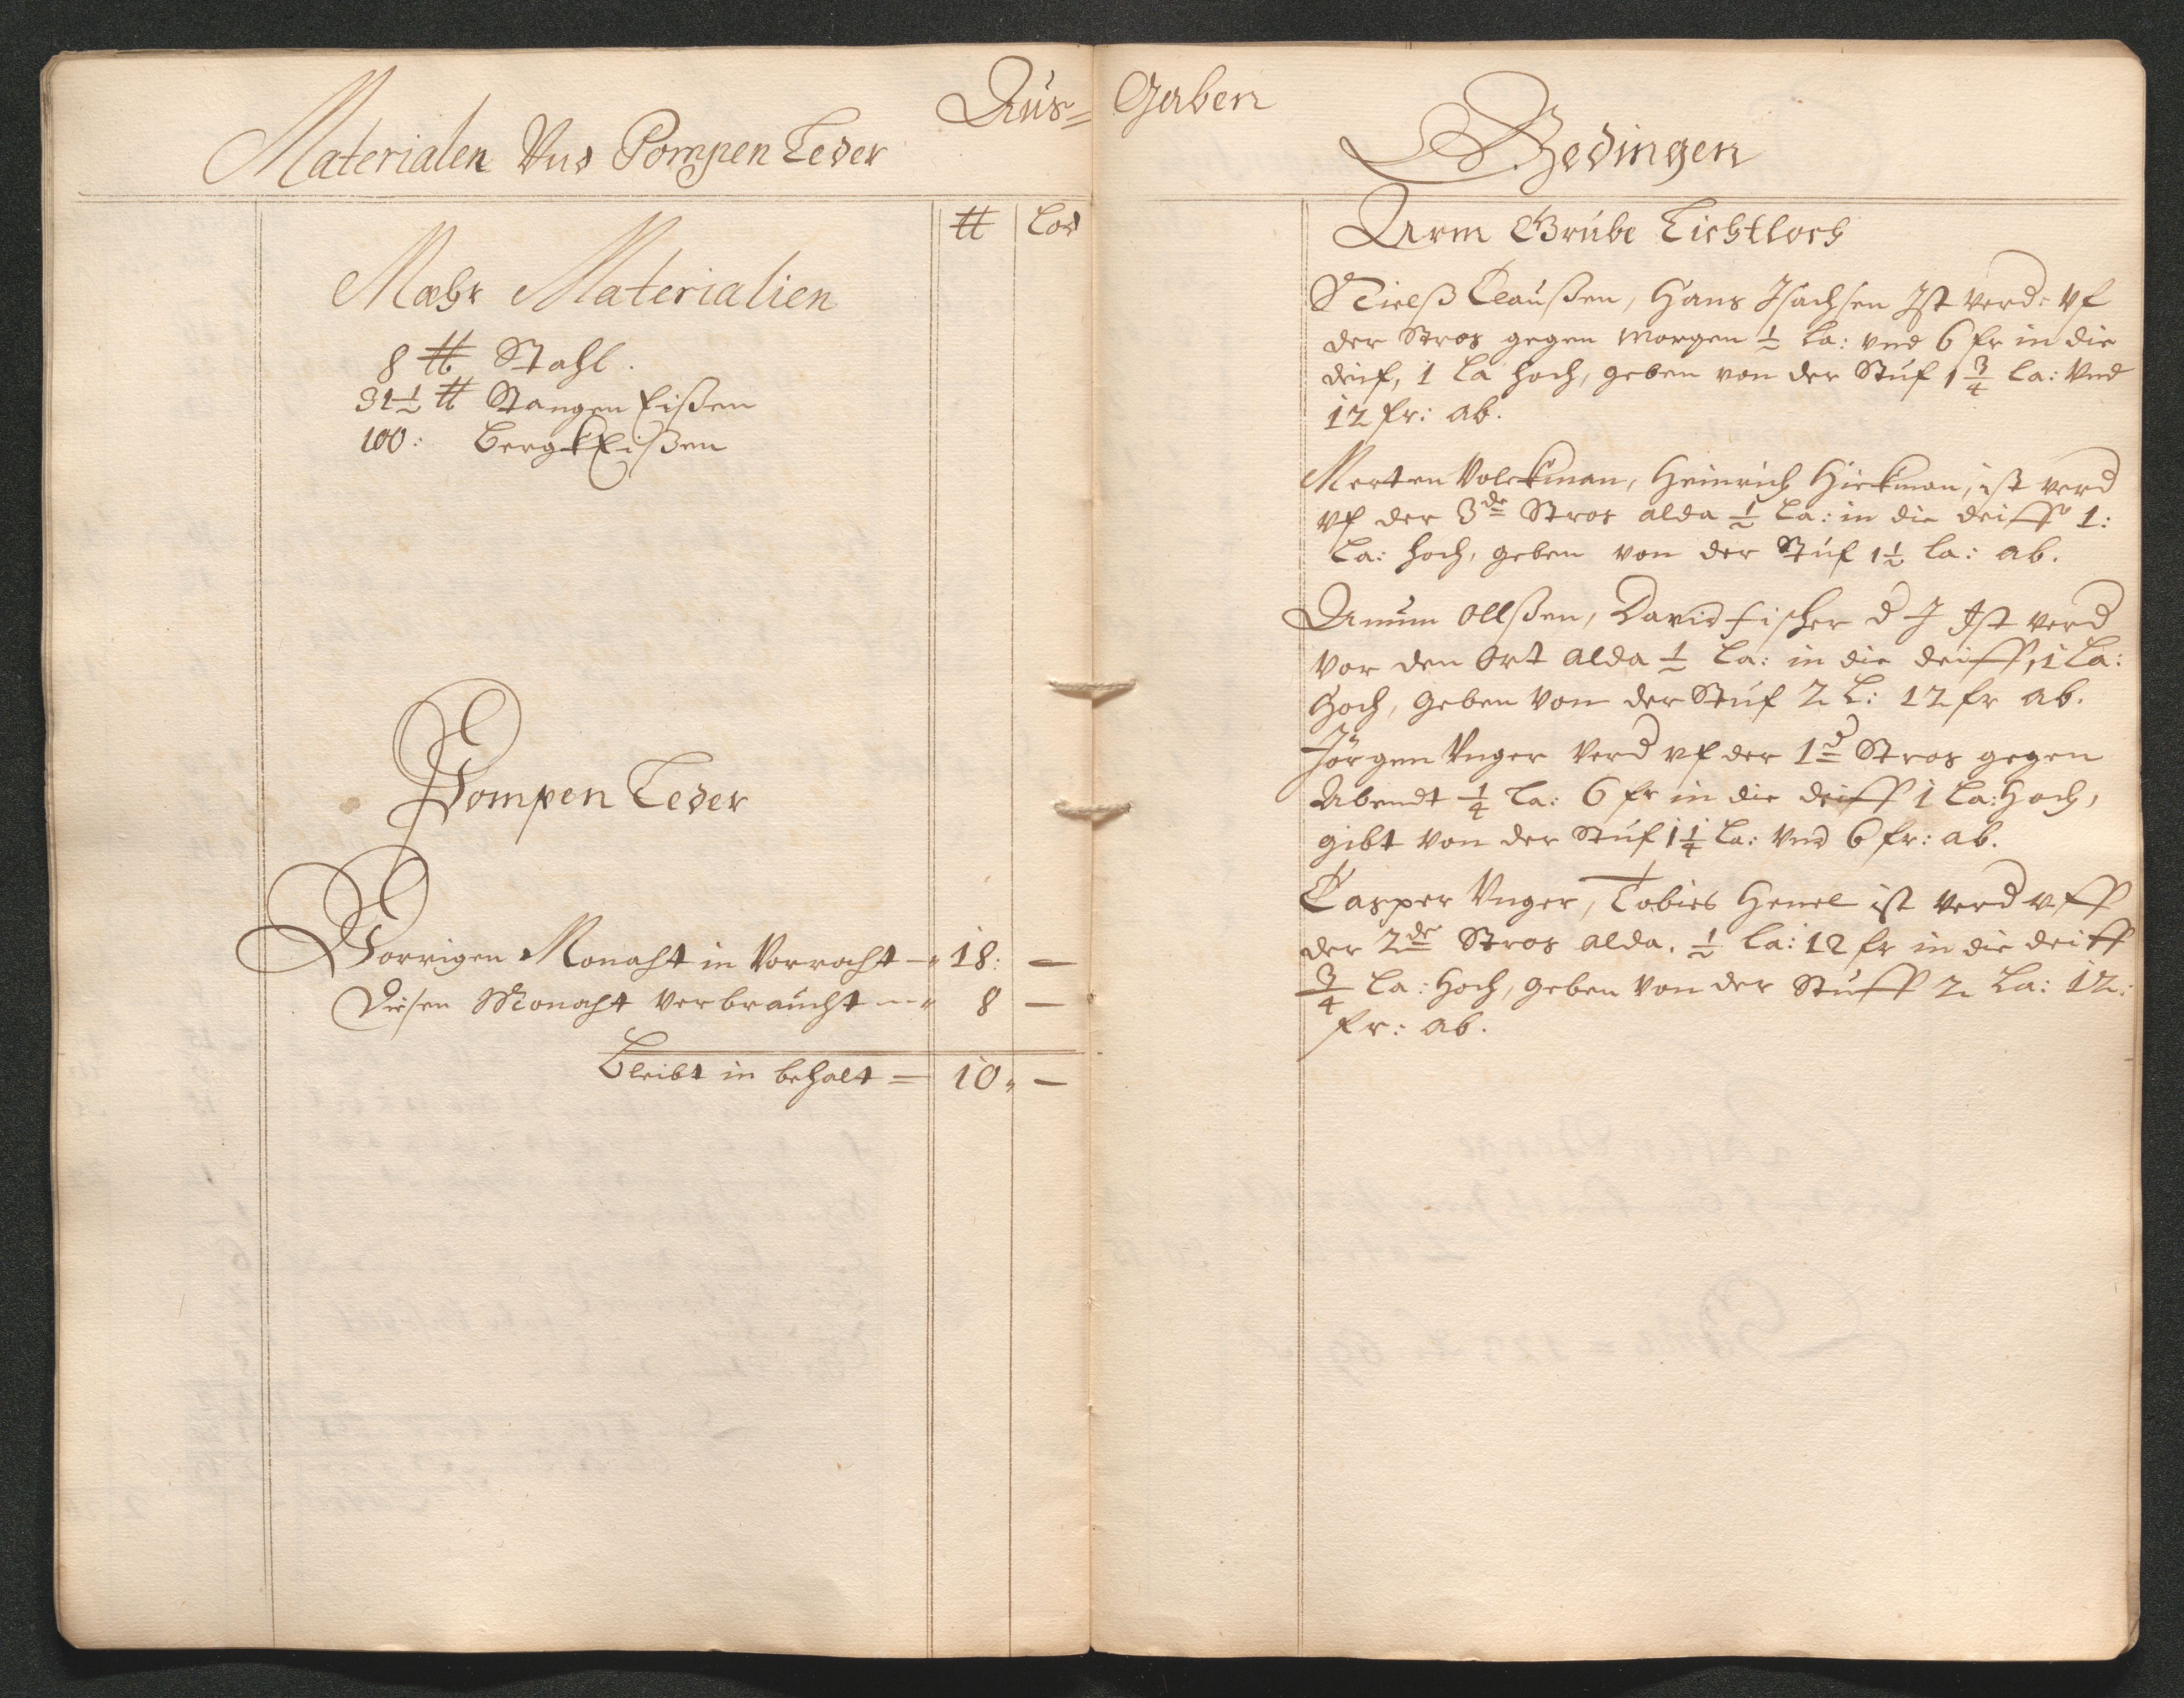 Aus= Gaben
Materialen Vnd Pompen Leder
℔ Lod
Mehr Materialien
8 ℔ Stahl.
31½ ℔ Stangen Eißen
100: BergkEißen
Pompen Leder
Vorrigen Monaht in Vorraht — 18: —
Diesen Monaht Verbraucht — 8 —
Bleibt in behalt = 10 „ —
Gedingen
Arm Grube Lichtloch
Nielß Claußen, Hans Isachsen Ist verd: vf
der Stros gegen Morgen ½ La: vnd 6 fr in die
deuf, 1 La hoch, geben von der Stuf 1 ¾ La: Vnd
12 fr: ab.
Merten Volckman, Heinrich Hickman, ist verd
vf der 3de Stros alda ½ La: in die deiff 1:
La: hoch, geben von der Stuf 1½ La: ab.
Amun Ollßen, David fischer d J Ist verd
Vor den Ort alda ½ La: in die deiff, 1 La:
Hoch, Geben Von der Stuf 2 L: 12 fr ab.
Jörgen Vnger Verd vf der 1d Stros gegen
Abendt ¼ La: 6 fr in die deiff 1 La: Hoch,
gibt Von der Stuf 1¼ La: Vnd 6 fr: ab.
Casper Vnger, Tobies Henel ist verd vff
der 2de Stros alda. ½ La: 12 fr in die deiff
¾ La: Hoch, geben Von der Stuff 2 La: 12:
fr: ab.